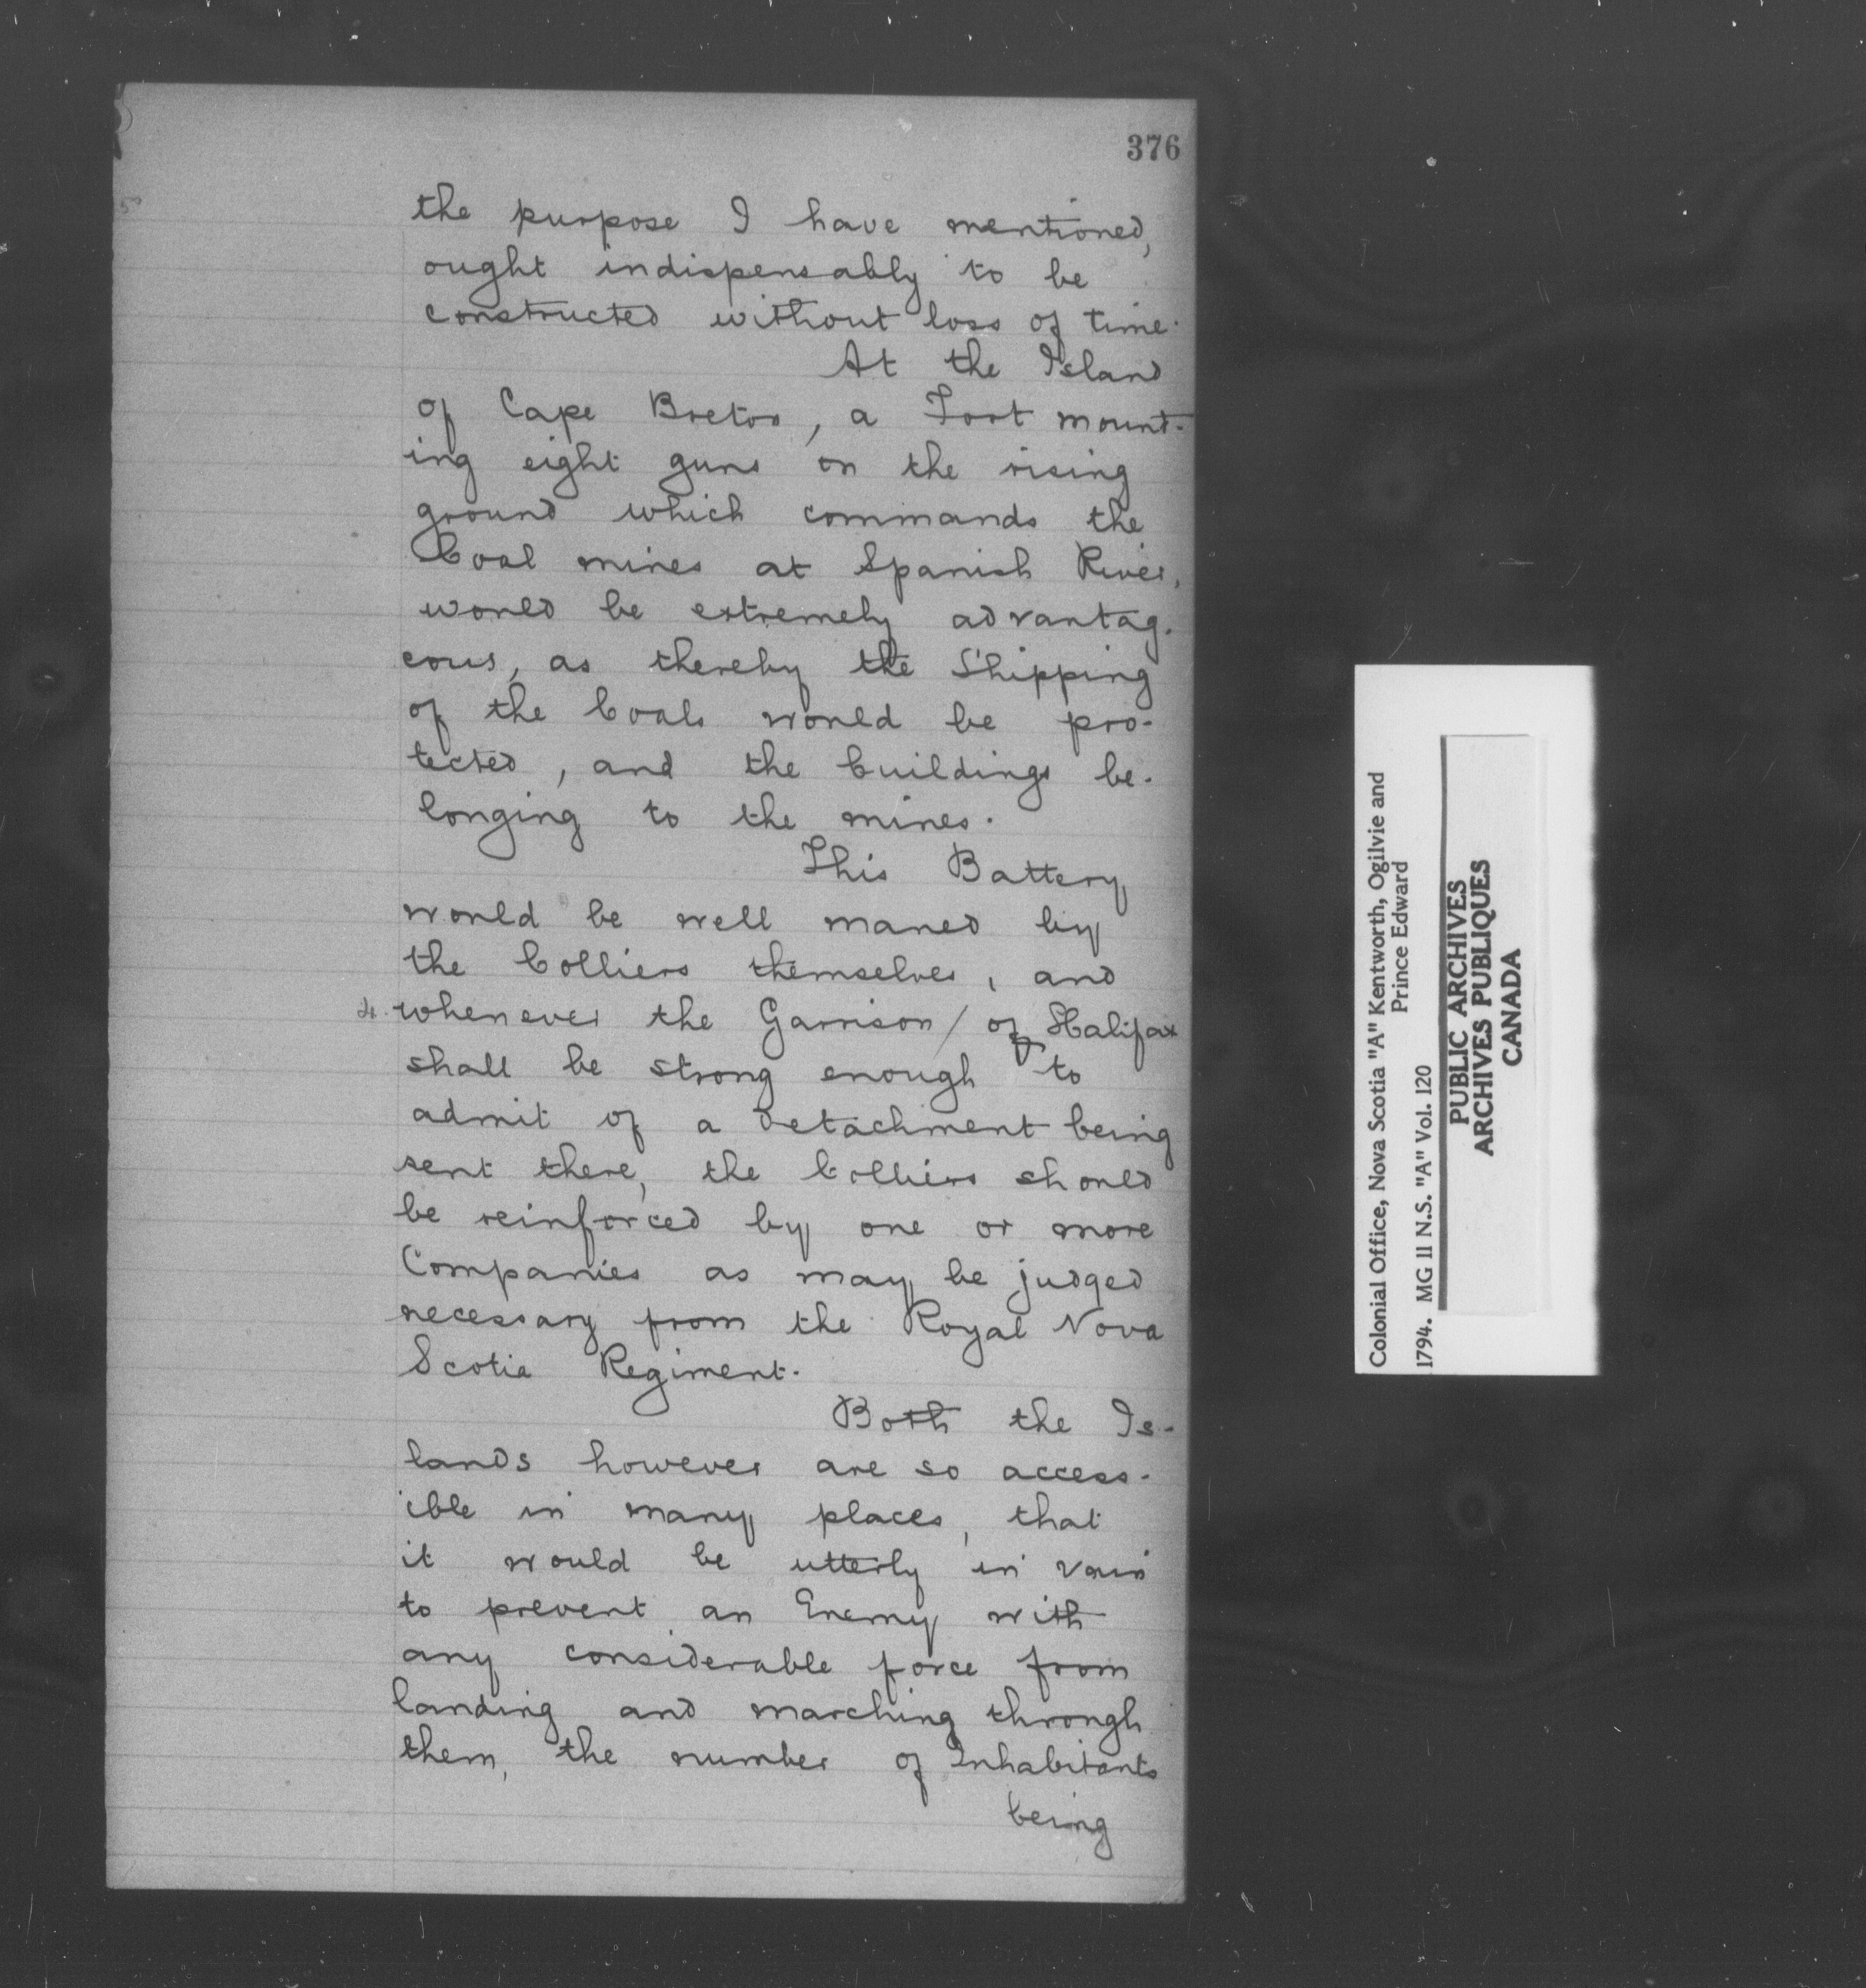 376
the purpose I have mentioned,
ought indispensably to be
constructed without loss of time.
At the Island
of Cape Breton, a Fort mount-
ing eight guns on the rising
ground which commands the
Coal mines at Spanish River,
would be extremely advantag-
eous, as thereby the Shipping
of the Coals would be pro-
tected, and the buildings be-
longing to the mines.
This Battery
would be well maned by
the Colliers themselves, and
4. whenever the Garrison / of Halifax
shall be strong enough to
admit of a Detachment being
sent there, the Colliers should
be reinforced by one or more
Companies as may be judged
necessary from the Royal Nova
Scotia Regiment.
Both the Is-
lands however are so access-
ible in many places, that
it would be utterly in vain
to prevent an Enemy with
any considerable force from
landing and marching through
them, the number of Inhabitants
being
Colonial Office, Nova Scotia "A" Kentworth, Ogilvie and
Prince Edward
1794. MG 11 N.S. "A" Vol. 120
PUBLIC ARCHIVES
ARCHIVES PUBLIQUES
CANADA